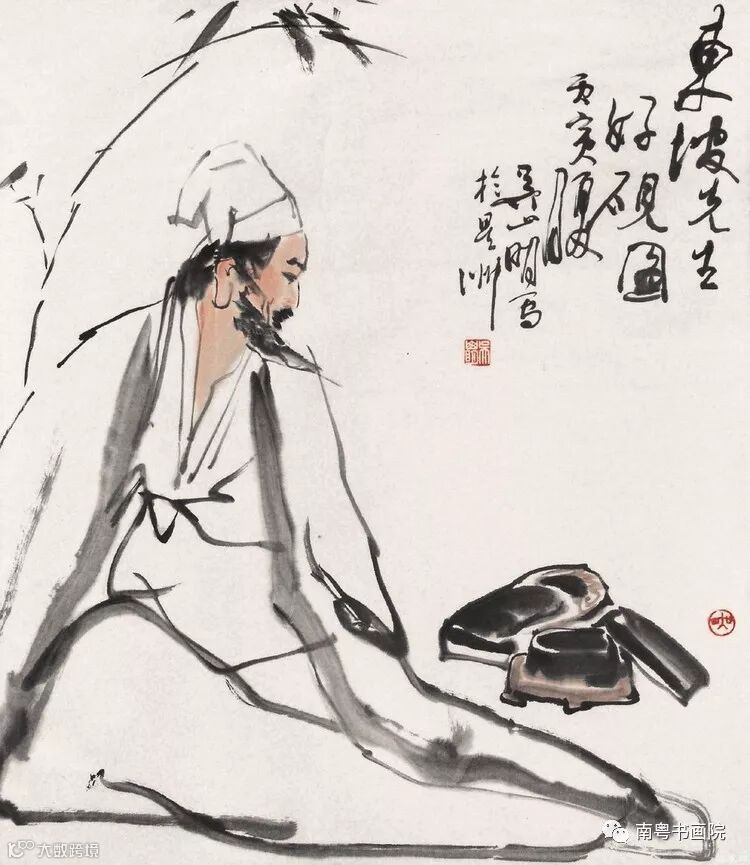 東坡先生
好硯圖
丙寅
吴山明写
於星洲
南粤书画院
大数跨境